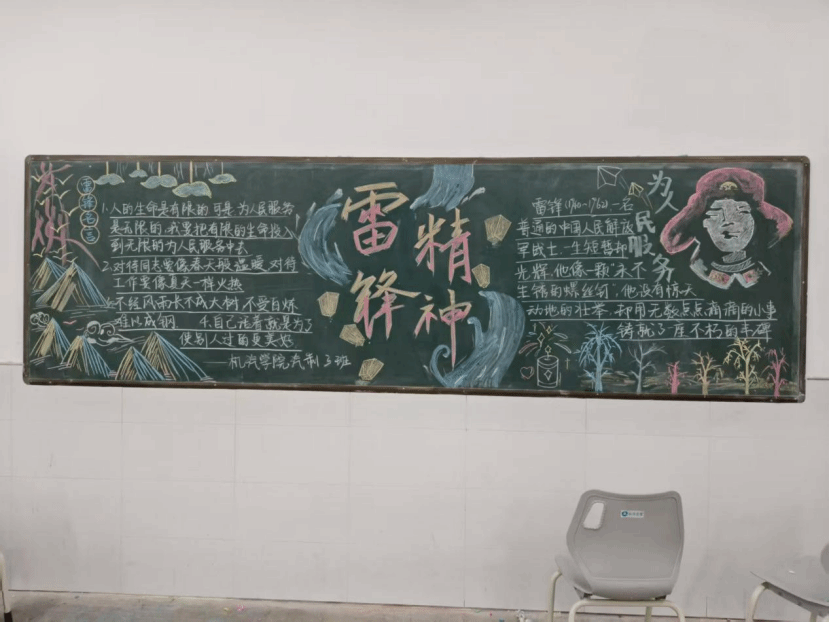 雷锋名言
1.人的生命是有限的可是为人民服务
是无限的,我要把有限的生命投入
到无限的为人民服务中去
2.对待同志要像春天般温暖,对待
工作要像夏天一样火热
3.不经风雨长不成大树,不受百炼
难以成钢 4.自己活着就是为了
使别人过的更美好
机汽学院汽制3班
雷锋
精神
雷锋(1940-1962),一名
普通的中国人民解放
军战士,一生短暂却
光辉,他像一颗永不
生锈的螺丝钉,他没有惊天
动地的壮举,却用无数点点滴滴的小事
铸就了座不朽的丰碑
为人民服务